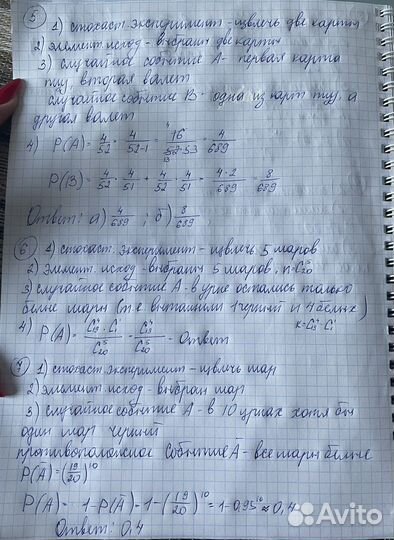 5 1) стохаст. эксперимент - извлечь две карты
2) элемент. исход - выбраны две карты
3) случайное событие A - первая карта
туз, вторая валет
случайное событие B - одна из карт туз, а
другая валет
4) P(A) = 4/52 · 4/52-1 = 16/52·53 = 4/689
P(B) = 4/52 · 4/51 + 4/52 · 4/51 = 4·2/689 = 8/689
Ответ: а) 4/689 ; б) 8/689 ;
6 1) стохаст. эксперимент - извлечь 5 шаров
2) элемент. исход - выбраны 5 шаров, n=C⁵₂₀
3) случайное событие A - в урне остались только
белые шары (т е вытащили 1 черный и 4 белых)
4) P(A) = / C⁵₂₀ = / C⁵₂₀ - Ответ
7 1) стохаст. эксперимент - извлечь шар
2) элемент исход - выбран шар
3) Случайное событие A - в 10 урнах хотя бы
один шар черный
противоположное событие A - все шары белые
P(A) = (19/20)¹⁰
P(A) = 1-P(Ā) = 1-(19/20)¹⁰ = 1-0,95¹⁰ ≈ 0,4
Ответ: 0,4
Avito